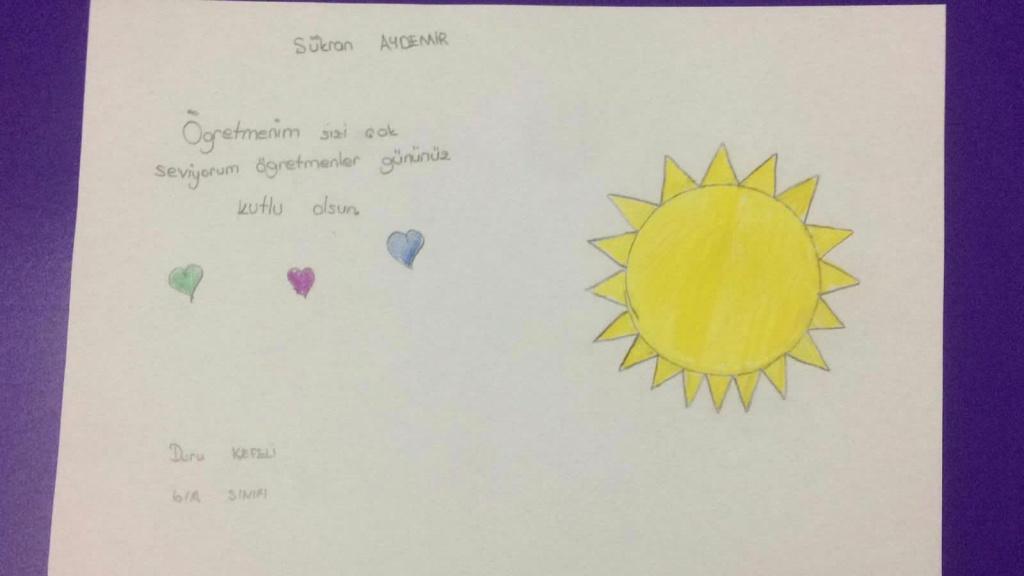 Sükran AYDEMİR
Öğretmenim sizi çok
seviyorum öğretmenler gününüz
kutlu olsun.
Duru KEFELİ
6/A SINIFI